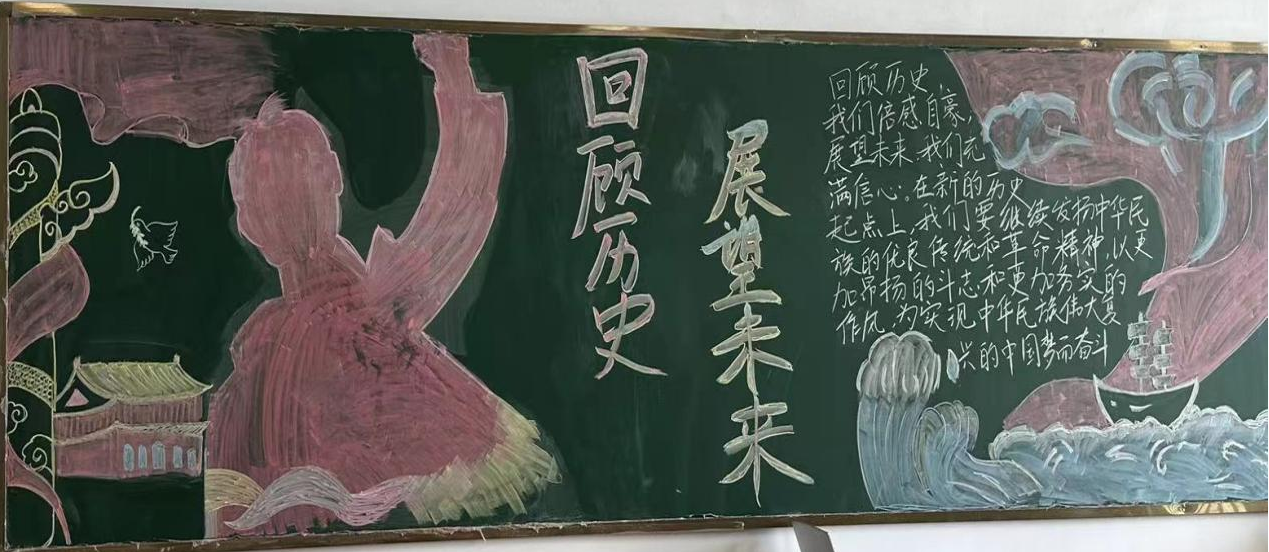 回顾历史
展望未来
回顾历史，
我们倍感自豪，
展望未来，我们充
满信心。在新的历史
起点上，我们要继续发扬中华民
族的优良传统和革命精神，以更
加昂扬的斗志和更加务实的
作风，为实现中华民族伟大复
兴的中国梦而奋斗